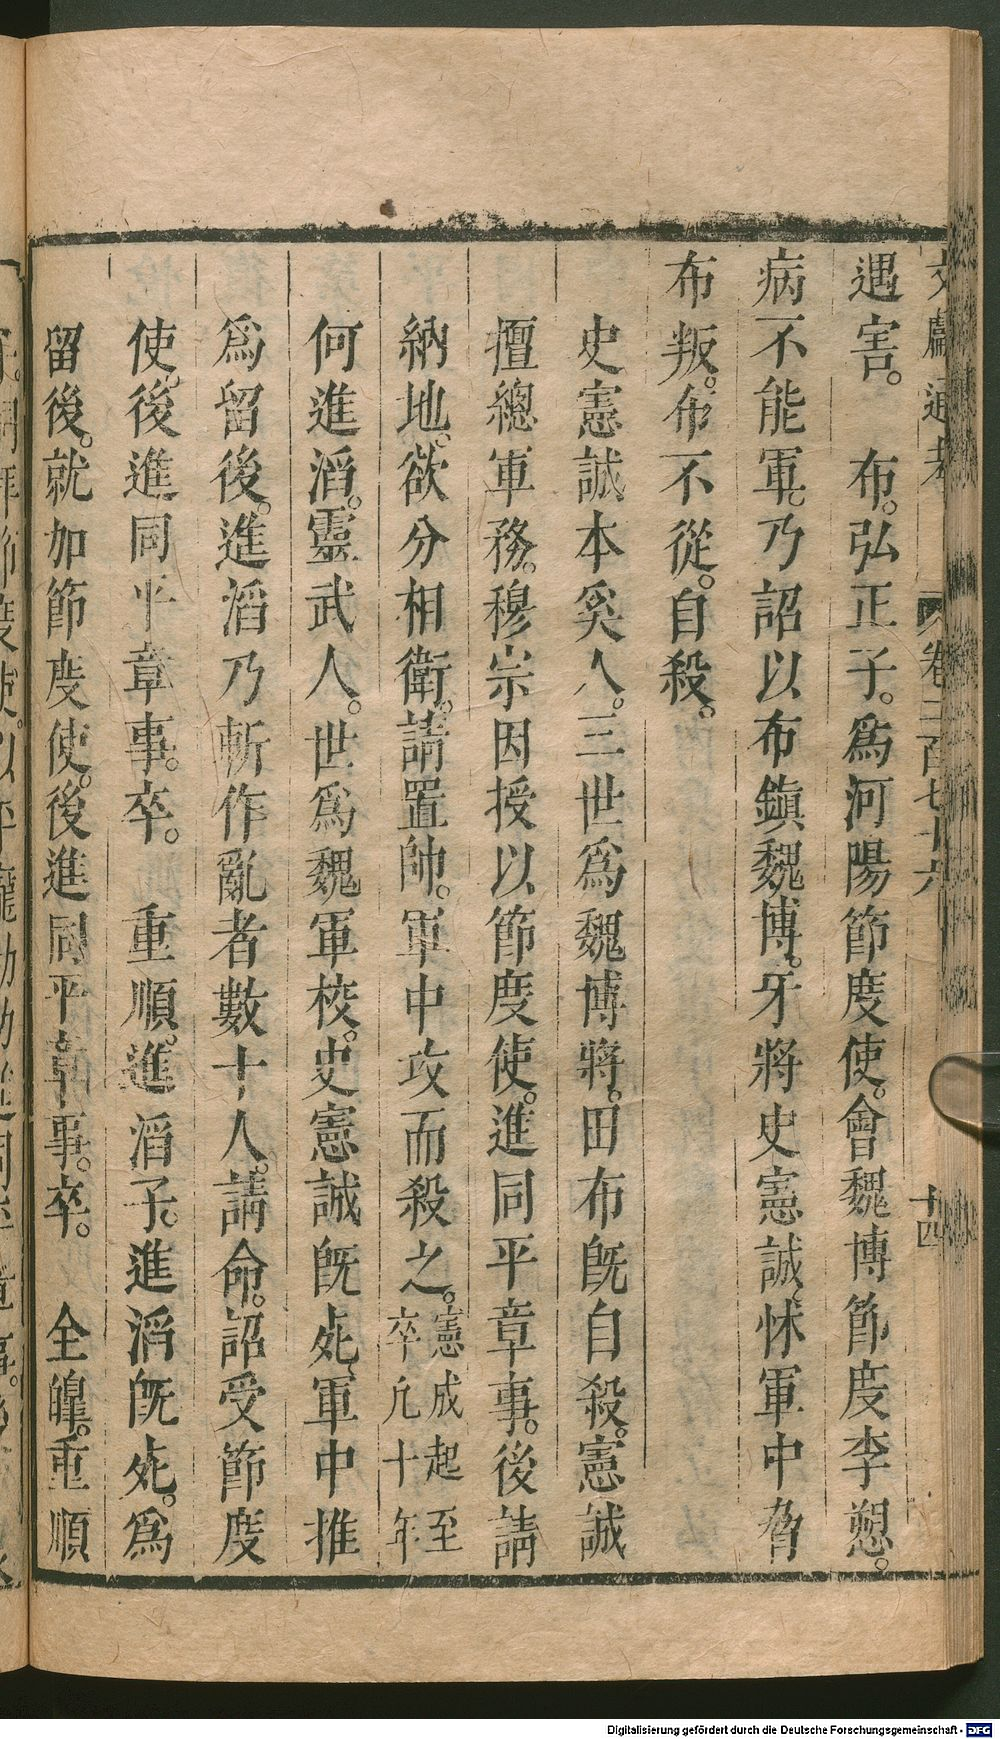 文獻通考 卷二百七十六 十四
遇害。 布。弘正子。爲河陽節度使。會魏博節度李愬。
病不能軍。乃詔以布鎭魏博。牙將史憲誠、怵軍中脅
布叛。布不從。自殺。
史憲誠本奚人。三世爲魏博將。田布旣自殺。憲誠
擅總軍務。穆宗因授以節度使。進同平章事。後請
納地。欲分相衛。請置帥。軍中攻而殺之。憲成起至卒凡十年
何進滔。靈武人。世爲魏軍校。史憲誠旣死、軍中推
爲留後。進滔乃斬作亂者數十人。請命。詔受節度
使。後進同平章事。卒。 重順。進滔子。進滔旣死。爲
留後。就加節度使。後進同平章事。卒。 全皞。重順
Digitalisierung gefördert durch die Deutsche Forschungsgemeinschaft - DFG